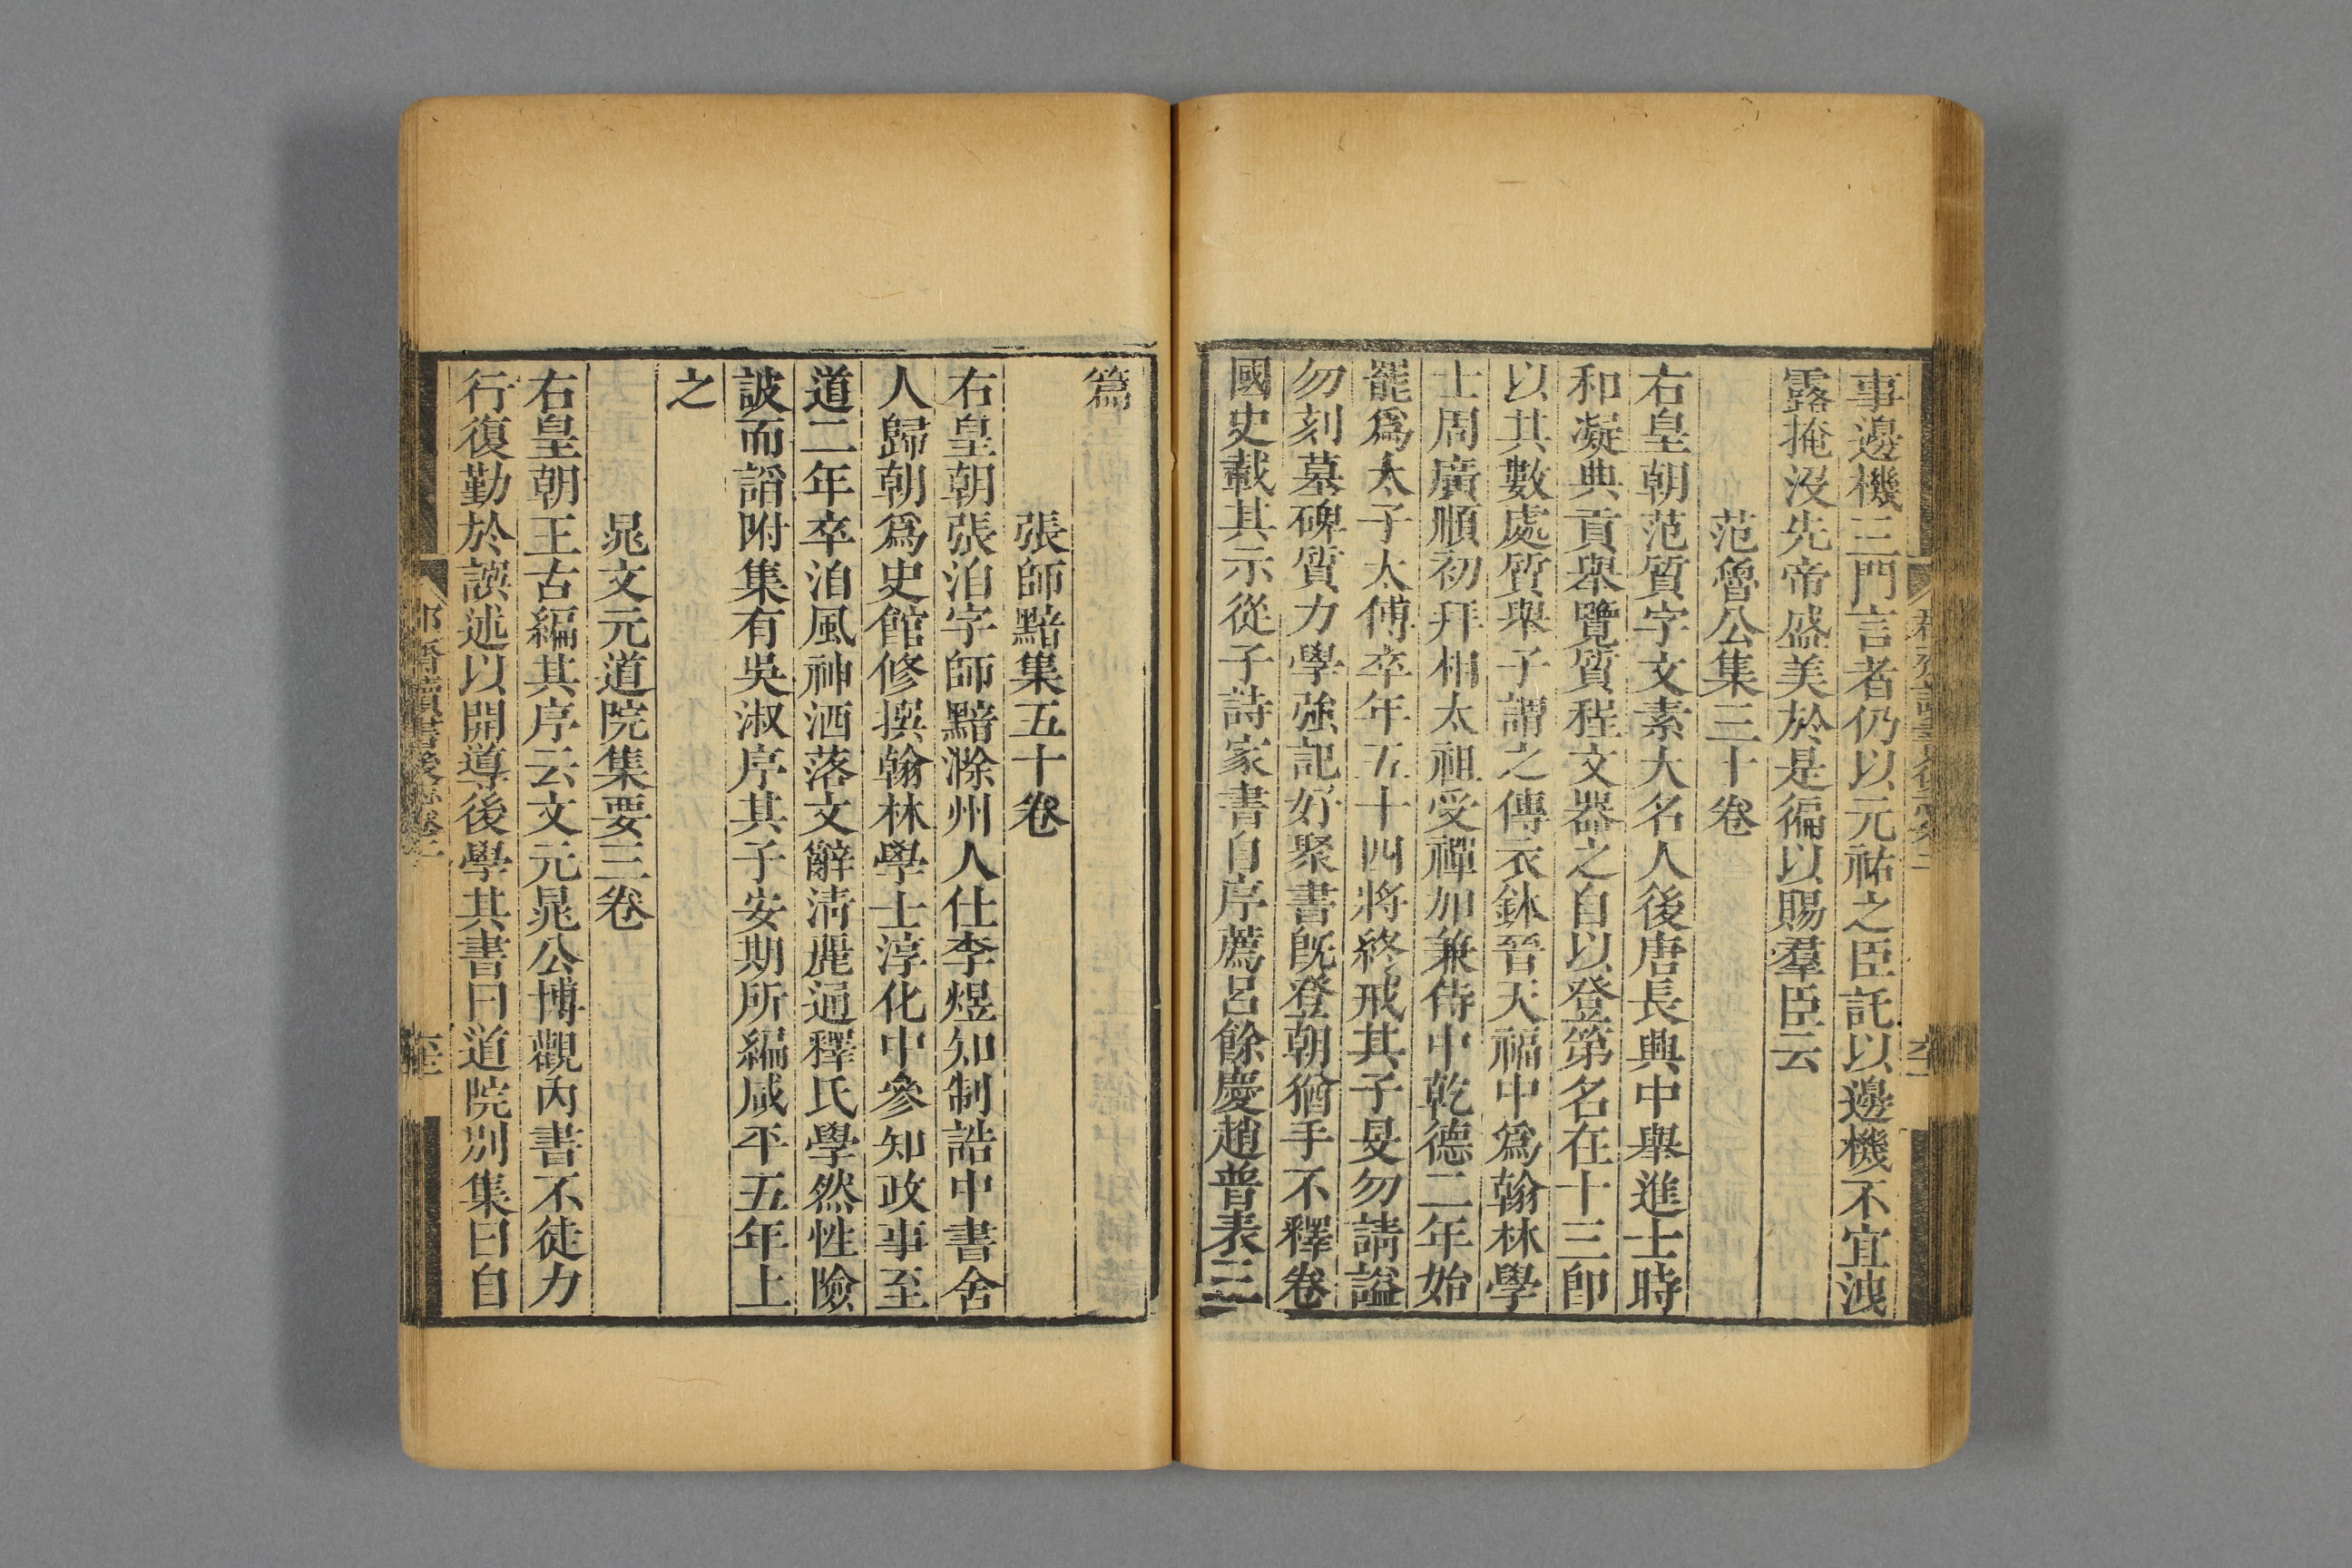 事邊機三門言者仍以元祐之臣託以邊機不宜洩
露掩沒先帝盛美於是徧以賜羣臣云
范魯公集三十卷
右皇朝范質字文素大名人後唐長興中舉進士時
和凝典貢舉覽質程文器之自以登第名在十三卽
以其數處質舉子謂之傳衣鉢晉天福中爲翰林學
士周廣順初拜相太祖受禪加兼侍中乾德二年始
罷爲太子太傅卒年五十四將終戒其子旻勿請謚
勿刻墓碑質力學強記好聚書旣登朝猶手不釋卷
國史載其示從子詩家書自序薦呂餘慶趙普表三
篇
張師黯集五十卷
右皇朝張洎字師黯滁州人仕李煜知制誥中書舍
人歸朝爲史館修撰翰林學士淳化中參知政事至
道二年卒洎風神洒落文辭淸麗通釋氏學然性險
詖而諂附集有吳淑序其子安期所編咸平五年上
之
晁文元道院集要三卷
右皇朝王古編其序云文元晁公博觀內書不徒力
行復勤於誤述以開導後學其書曰道院別集曰自
郡齋讀書後志卷二